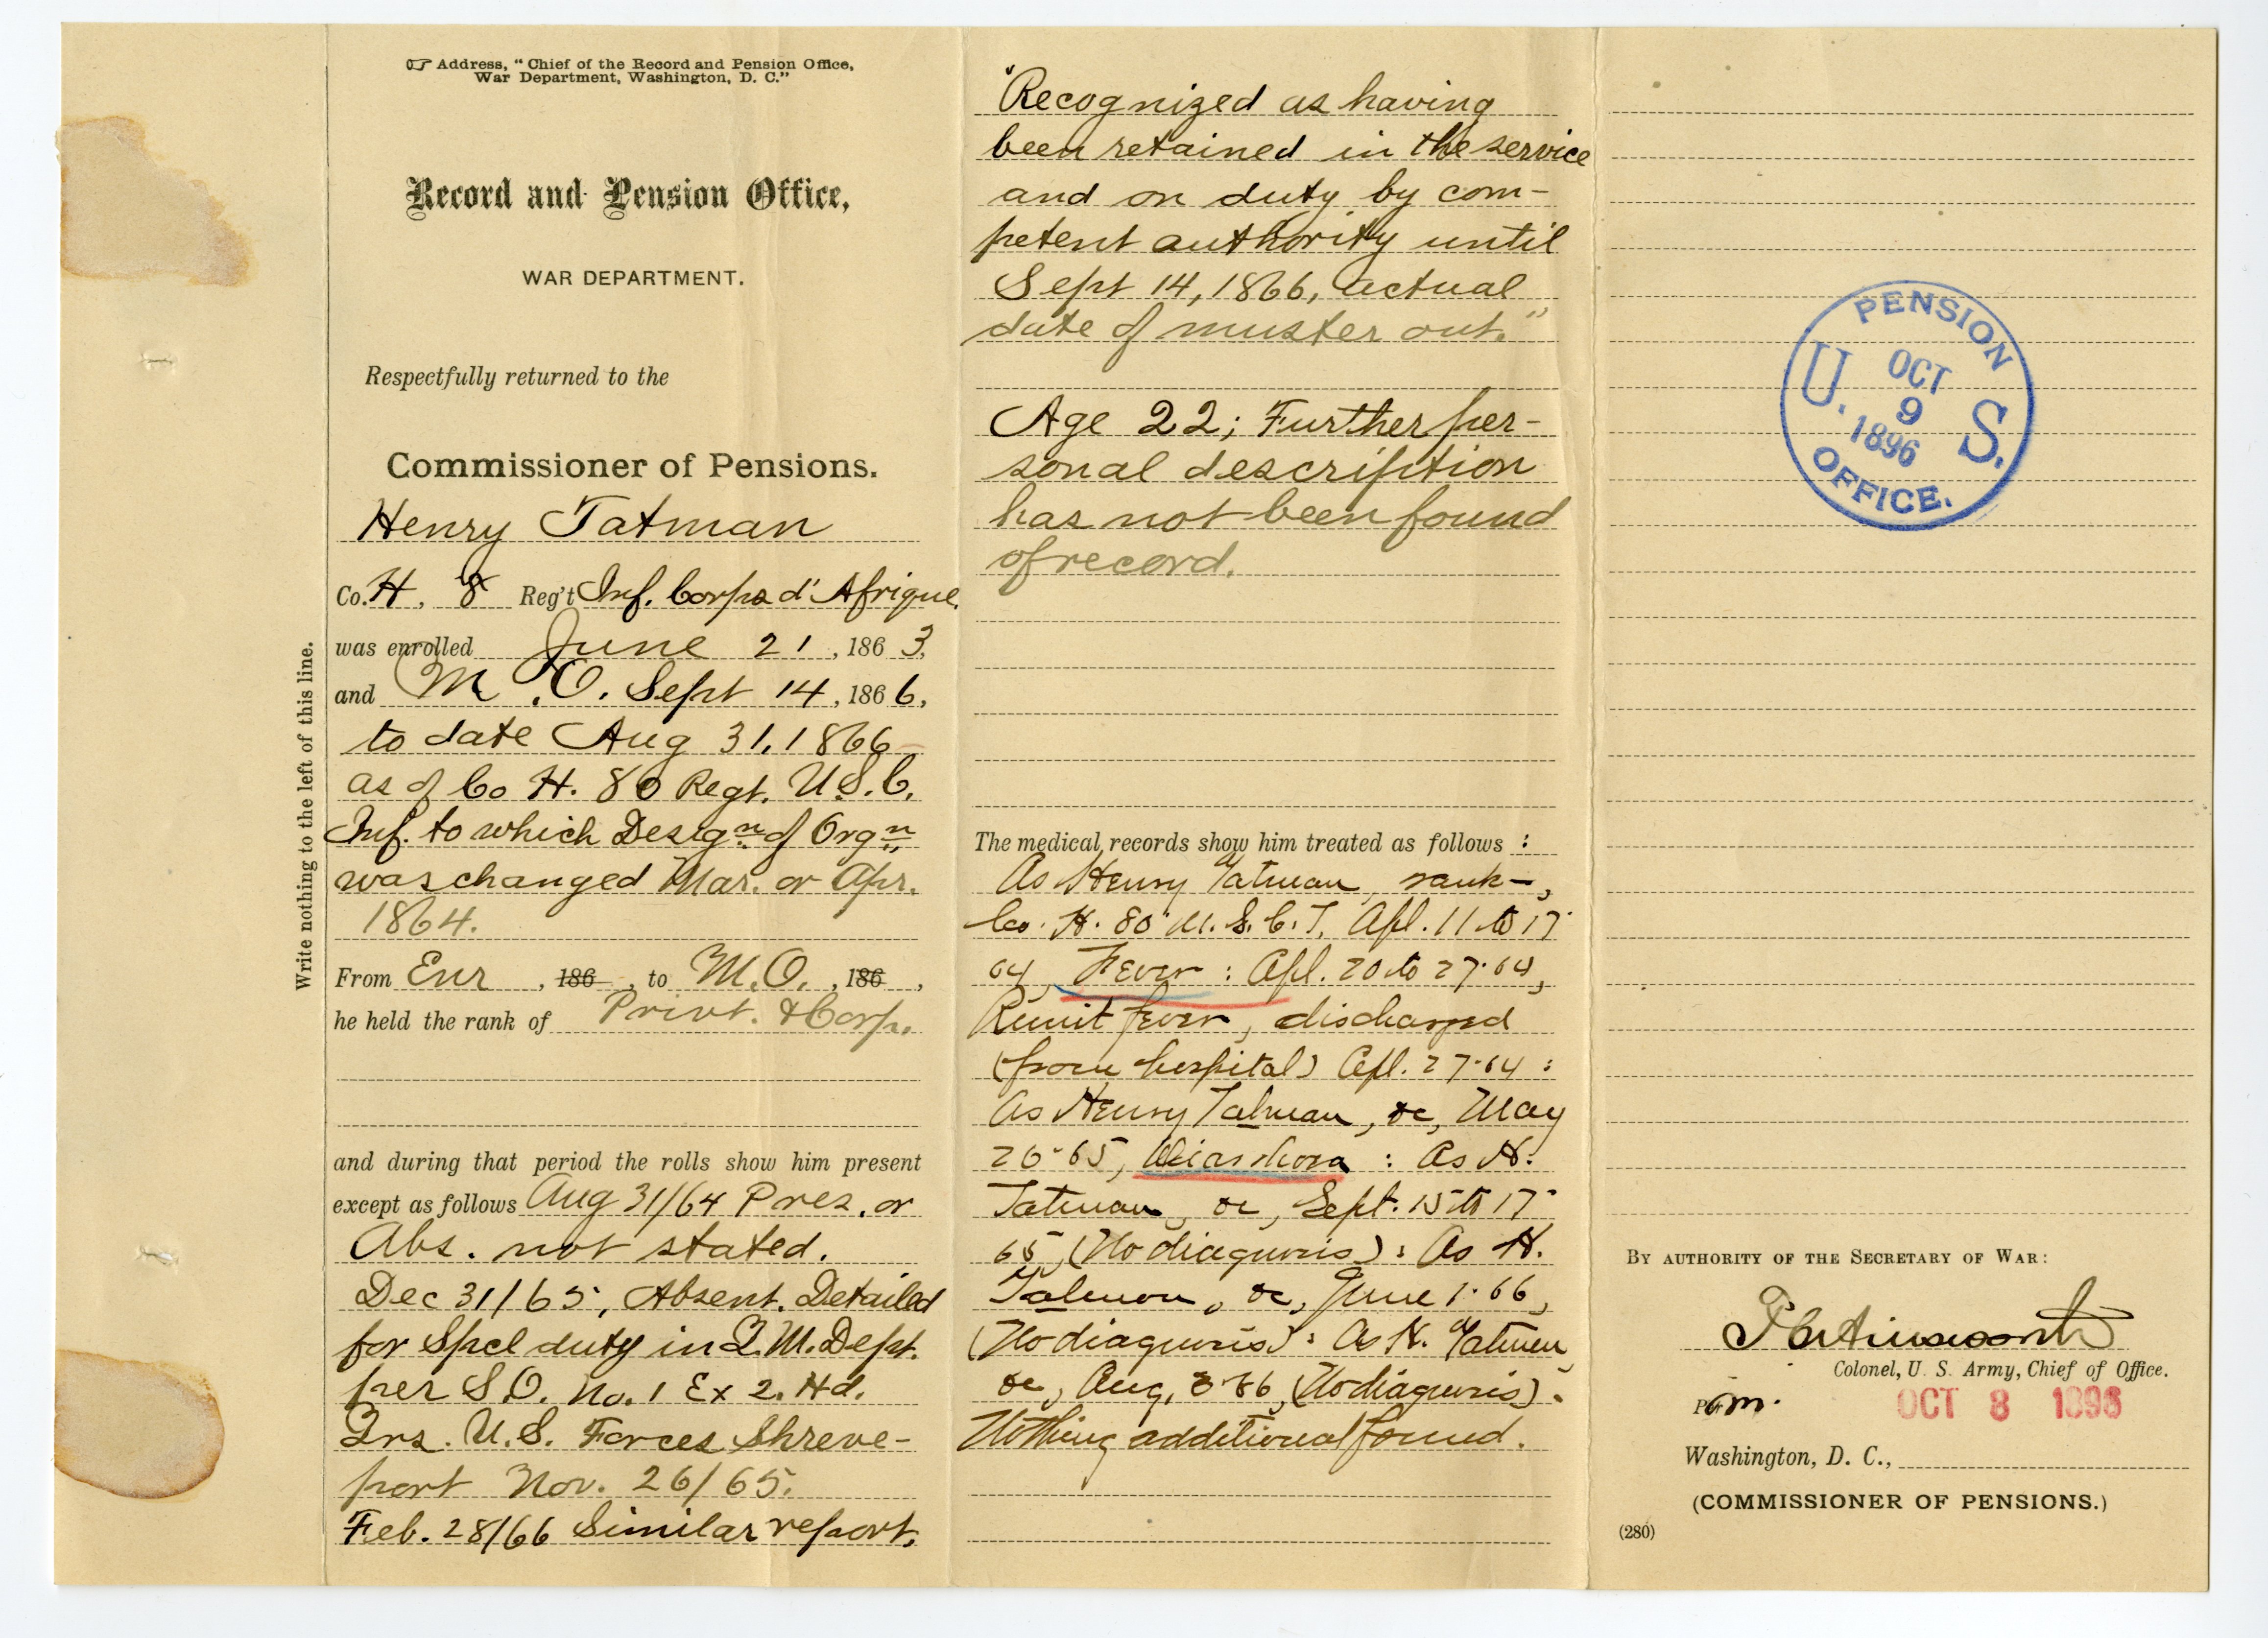 ☞ Address, "Chief of the Record and Pension Office,
War Department, Washington, D. C."
Record and Pension Office,
WAR DEPARTMENT.
Respectfully returned to the
Commissioner of Pensions.
Henry Tatman
Co. H, 8 Reg't Inf. Corps d'Afrique
was enrolled June 21, 1863,
and M.O. Sept 14, 1866,
to date Aug 31, 1866
as of Co H. 80 Regt. U.S.C.
Inf. to which Desigⁿ of Orgⁿ
was changed Mar. or Apr.
1864.
From Enr, 186 , to M.O., 186 ,
he held the rank of Privt. & Corp.
and during that period the rolls show him present
except as follows Aug 31/64 Pres. or
Abs. not stated.
Dec 31/65, Absent. Detailed
for Spcl duty in Q.M. Dept.
per S.O. No. 1 Ex 2. Hd.
Qrs. U.S. Forces Shreve-
port Nov. 26/65.
Feb. 28/66 Similar report.
Write nothing to the left of this line.
"Recognized as having
been retained in the service
and on duty by com-
petent authority until
Sept 14, 1866, actual
date of muster out."
Age 22; Further per-
sonal description
has not been found
of record.
The medical records show him treated as follows :
As Henry Tatman, rank –,
Co. H. 80 U.S.C.T. Apl. 11 to 17
64, Fever : Apl. 20 to 27·64,
Remit fever, discharged
(from hospital) Apl. 27·64 :
As Henry Talman, &c, May
26·65, Diarrhoea : As H.
Tatman, &c, Sept. 15 to 17
65 (No diagnosis) : As H.
Talmon, &c, June 1·66,
(No diagnosis) : As H. Tatmen
&c, Aug, 3 66, (No diagnosis).
Nothing additional found.
PENSION
U. S.
OCT
9
1896
OFFICE.
BY AUTHORITY OF THE SECRETARY OF WAR:
F C Ainsworth
Colonel, U. S. Army, Chief of Office.
Per m.
OCT 8 1896
Washington, D. C.,
(COMMISSIONER OF PENSIONS.)
(280)